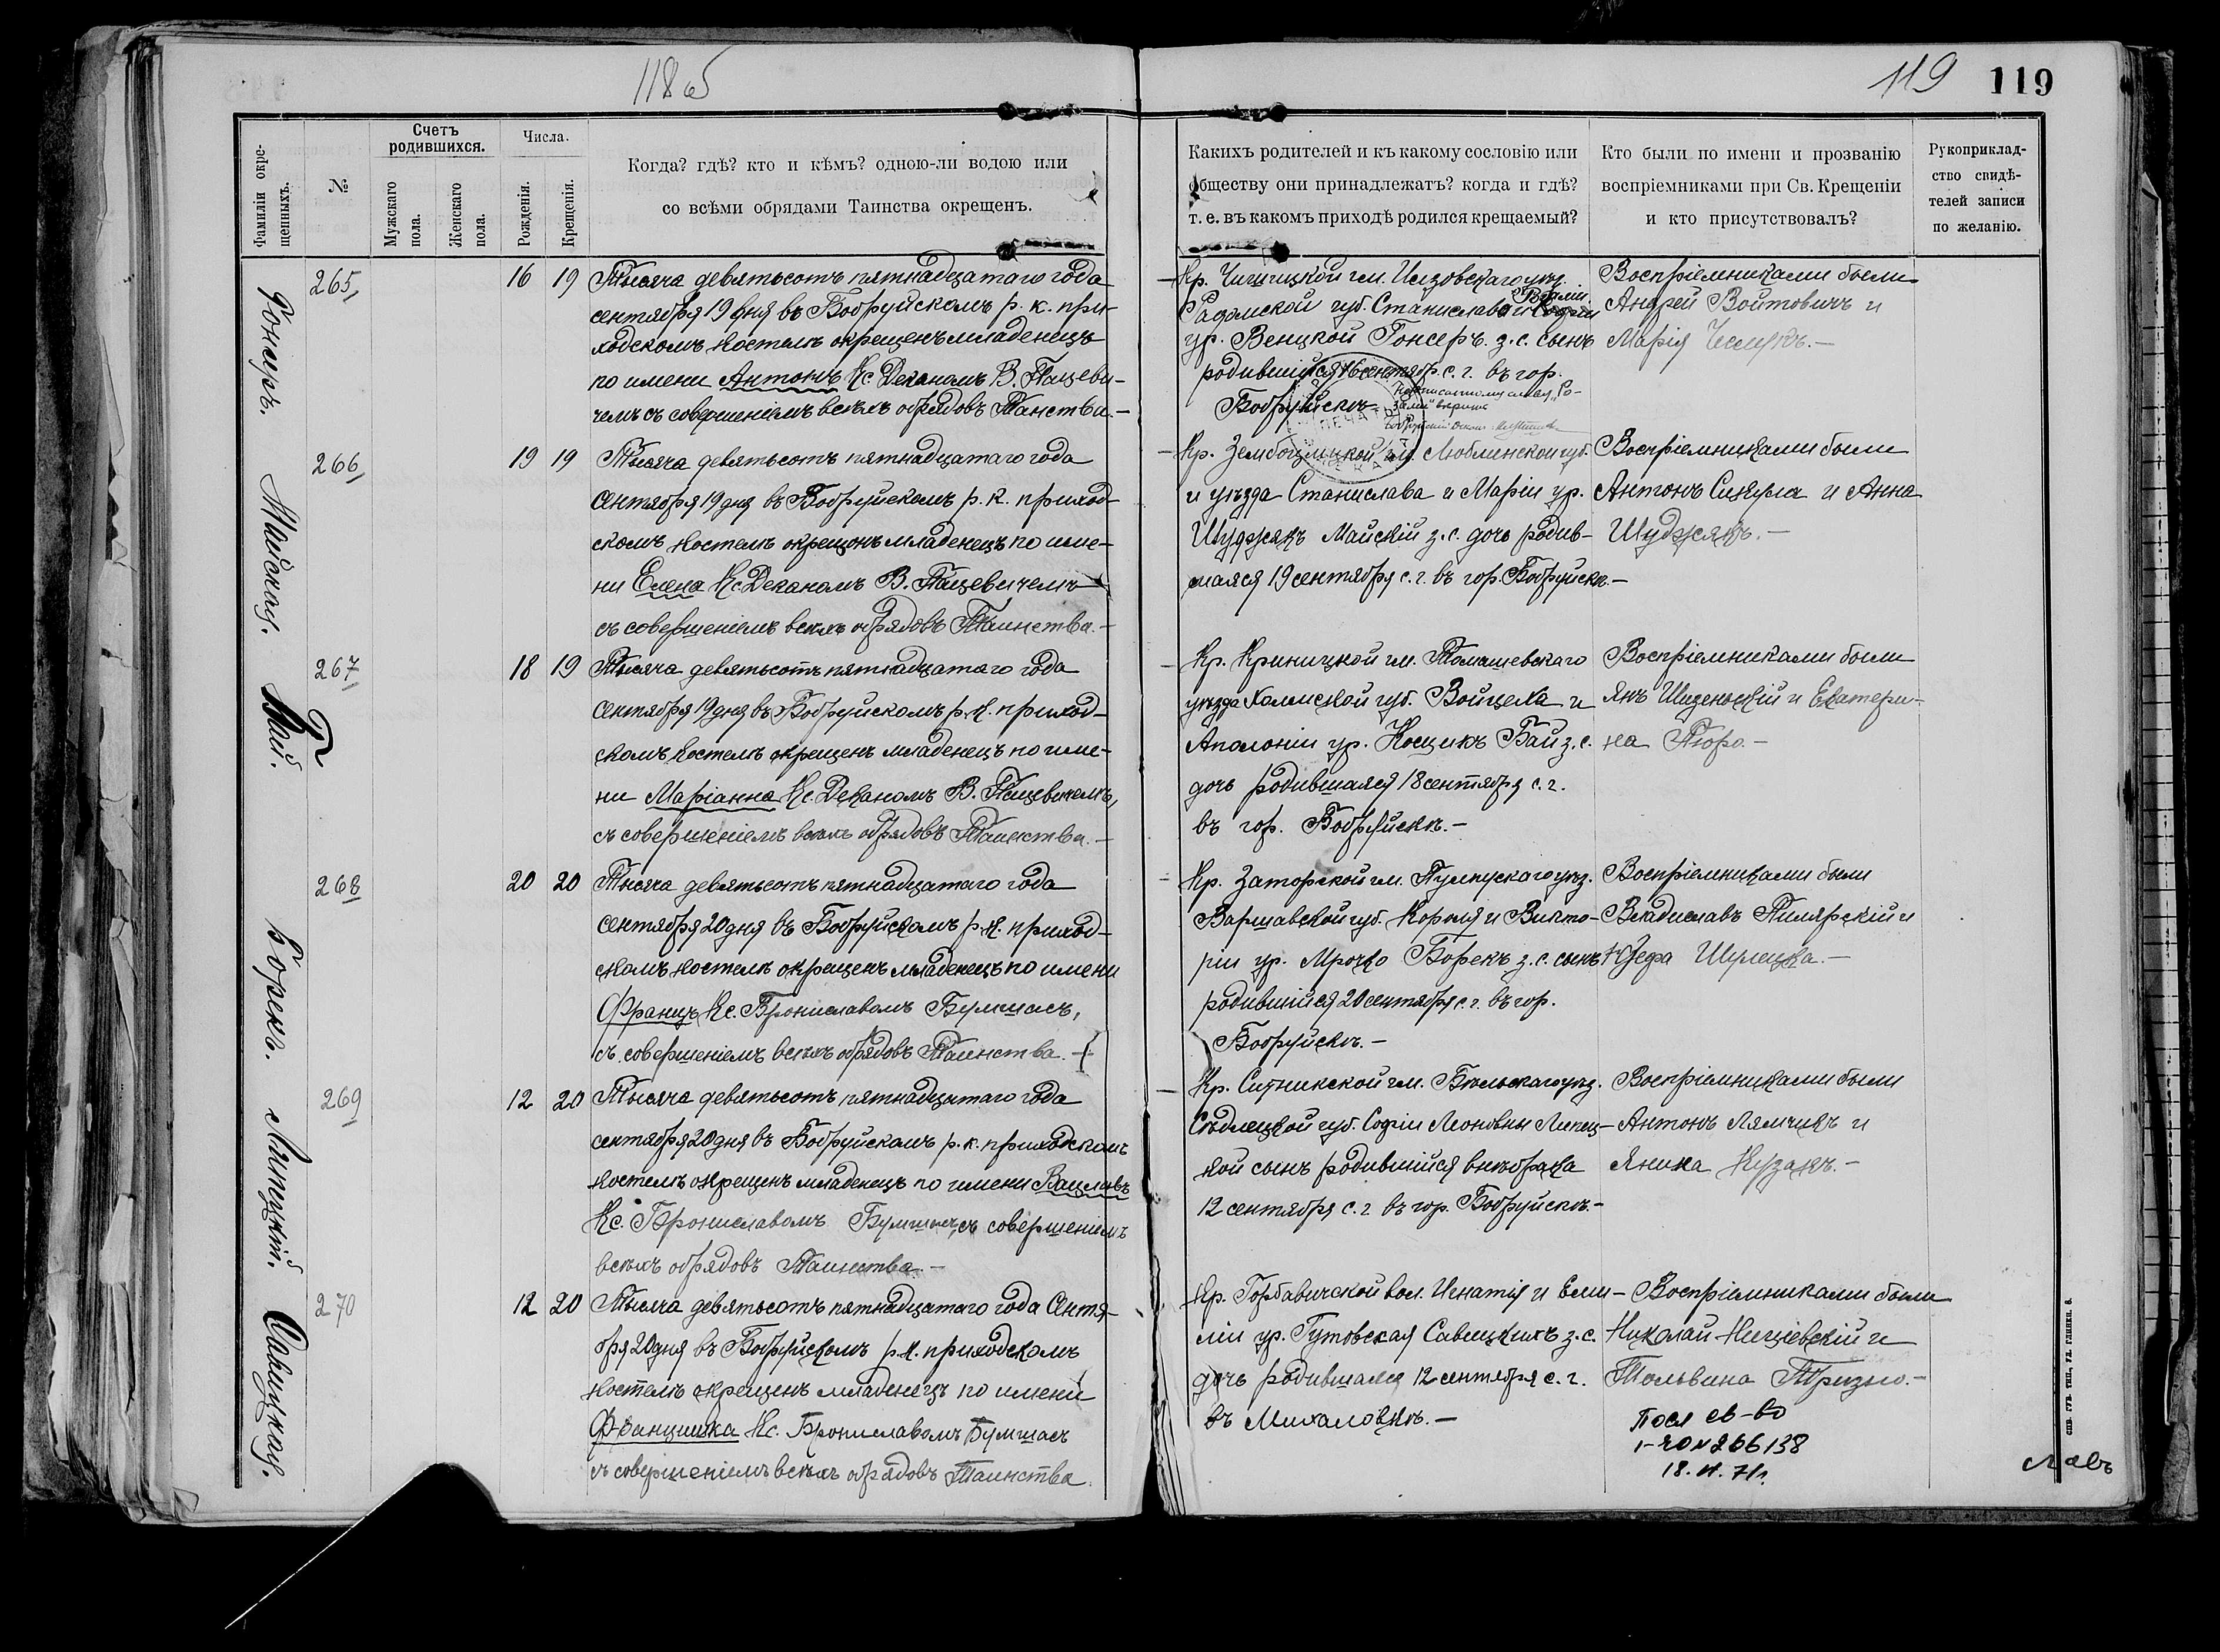 118 об
119
119
Фамиліи окре-
щенныхъ.
№
Счетъ
родившихся.
Мужскаго
пола.
Женскаго
пола.
Числа.
Рожденія.
Крещенія.
Когда? гдѣ? кто и кѣмъ? одною-ли водою или
со всѣми обрядами Таинства окрещенъ.
Какихъ родителей и къ какому сословію или
обществу они принадлежатъ? когда и гдѣ?
т. е. въ какомъ приходѣ родился крещаемый?
Кто были по имени и прозванію
воспріемниками при Св. Крещеніи
и кто присутствовалъ?
Рукоприклад-
ство свидѣ-
телей записи
по желанію.
Гонсеръ.
265
16 19
Тысяча девятьсотъ пятнадцатаго года
сентября 19 дня въ Бобруйскомъ р. к. при-
ходскомъ костелѣ окрещенъ младенецъ
по имени Антонъ Кс. Деканомъ В. Пацеви-
чемъ съ совершеніемъ всѣхъ обрядовъ Таинства.-
Кр. гм. Илзовскаго уѣз.
Розаліи
Радомской губ. Станислава и Софіи
ур. Веницкой Гонсеръ. з. с. сынъ
родившійся 16 сентябр. с. г. въ гор.
Бобруйскѣ
Воспріемниками были
Андрей Войтовичъ и
Марія
Майская.
266
19 19
Тысяча девятьсотъ пятнадцатаго года
сентября 19 дня въ Бобруйскомъ р. к. приход-
скомъ костелѣ окрещенъ младенецъ по име-
ни Елена Кс. Деканомъ В. Пацевичемъ
съ совершеніемъ всѣхъ обрядовъ Таинства.-
Кр. гм. Люблинской губ.
и уѣзда Станислава и Маріи ур.
Шуджякъ Майскій з. с. дочь родив-
шаяся 19 сентября с. г. въ гор. Бобруйскѣ.-
Воспріемниками были
Антонъ Сикула и Анна
Шуджякъ.-
Бай.
267
18 19
Тысяча девятьсотъ пятнадцатаго года
сентября 19 дня въ Бобруйскомъ р. к. приход-
скомъ костелѣ окрещенъ младенецъ по име-
ни Маріанна Кс. Деканомъ В. Пацевичемъ,
съ совершеніемъ всѣхъ обрядовъ Таинства.-
Кр. Криницкой гм. Томашевскаго
уѣзда Холмской губ. Войцеха и
Аполоніи ур. Косцикъ Бай з. с.
дочь родившаяся 18 сентября с. г.
въ гор. Бобруйскѣ.-
Воспріемниками были
Янъ и Екатери-
на Пюро.-
Борекъ.
268
20 20
Тысяча девятьсотъ пятнадцатаго года
сентября 20 дня въ Бобруйскомъ р. к. приход-
скомъ костелѣ окрещенъ младенецъ по имени
Францъ Кс. Брониславомъ Бумшасъ,
съ совершеніемъ всѣхъ обрядовъ Таинства.-
Кр. Заторской гм. Пултускаго уѣз.
Варшавской губ. Короля и Викто-
ріи ур. Мрочко Борекъ з. с. сынъ
родившійся 20 сентября с. г. въ гор.
Бобруйскѣ.-
Воспріемниками были
Владиславъ Пилярскій и
Юзефа Шулецка.-
Липецкій.
269
12 20
Тысяча девятьсотъ пятнадцатаго года
сентября 20 дня въ Бобруйскомъ р. к. приходскомъ
костелѣ окрещенъ младенецъ по имени Вацлавъ
Кс. Брониславомъ Бумшасъ, съ совершеніемъ
всѣхъ обрядовъ Таинства.-
Кр. Ситникской гм. Бѣльскаго уѣз.
Сѣдлецкой губ. Софіи Леоновны Липец-
кой сынъ родившійся внѣ брака
12 сентября с. г. въ гор. Бобруйскѣ.-
Воспріемниками были
Антонъ Лямчикъ и
Янина Кузакъ.-
Савицкая.
270
12 20
Тысяча девятьсотъ пятнадцатаго года Сентя-
бря 20 дня въ Бобруйскомъ р. к. приходскомъ
костелѣ окрещенъ младенецъ по имени
Францишка Кс. Брониславомъ Бумшасъ
съ совершеніемъ всѣхъ обрядовъ Таинства.
Кр. Горбавичской вол. Игнатія и Еми-
ліи ур. Гутовская Савицкихъ з. с.
дочь родившаяся 12 сентября с. г.
въ Михаловкѣ.-
Воспріемниками были
Николай и
Тризно.-
св-во
266138